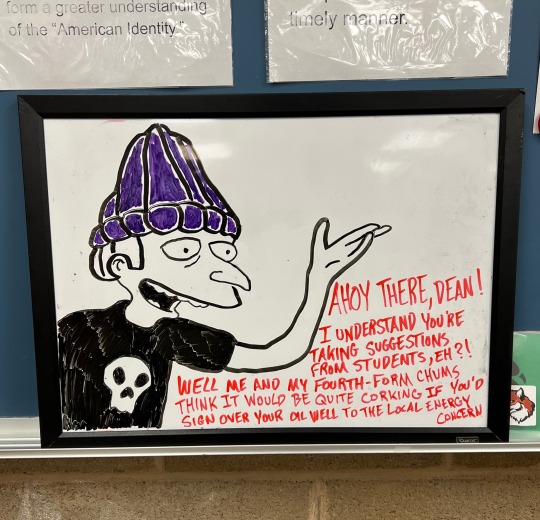 form a greater understanding
of the "American Identity"
timely manner.
AHOY THERE, DEAN!
I UNDERSTAND YOU'RE
TAKING SUGGESTIONS
FROM STUDENTS, EH?!
WELL ME AND MY FOURTH-FORM CHUMS
THINK IT WOULD BE QUITE CORKING IF YOU'D
SIGN OVER YOUR OIL WELL TO THE LOCAL ENERGY
CONCERN